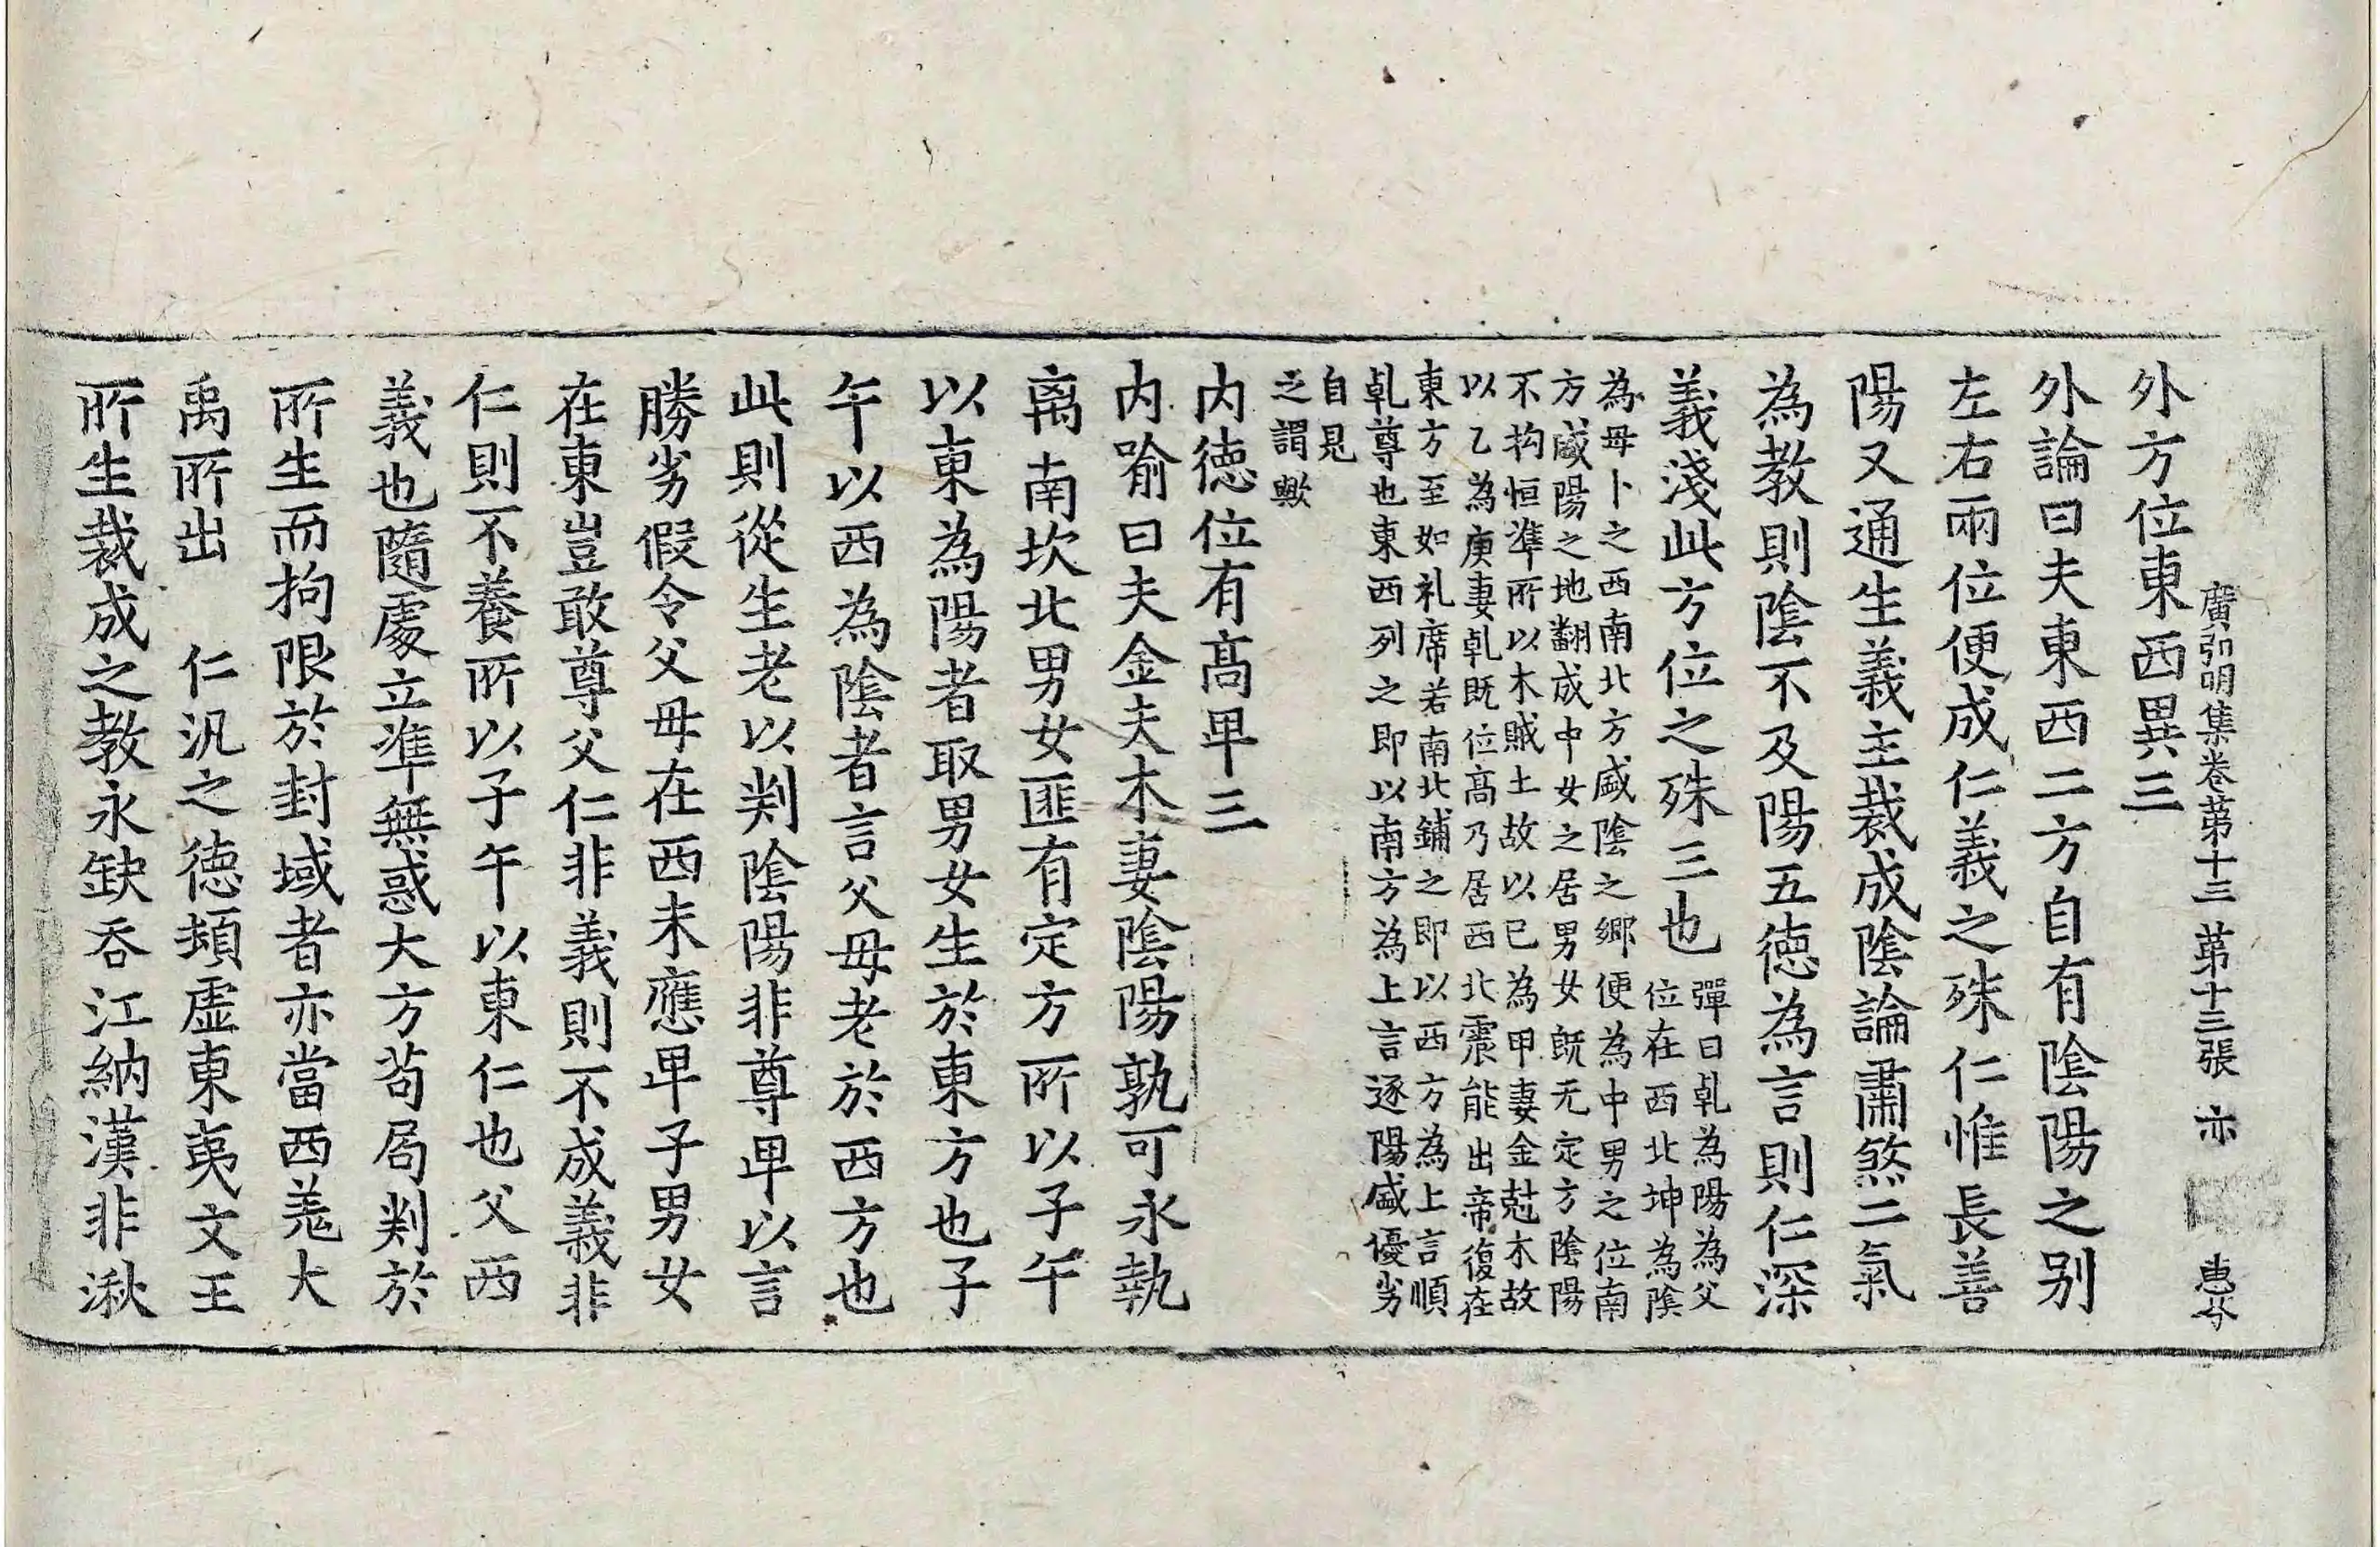 廣弘明集卷苐十三 苐十三張 亦 惠
外方位東西異三
外論曰夫東西二方自有陰陽之别
左右兩位便成仁義之殊仁惟長善
陽又通生義主裁成陰論肅煞二氣
為教則陰不及陽五德為言則仁深
義淺此方位之殊三也
彈曰乹為陽為父
位在西北坤為陰
為母卜之西南北方盛陰之鄉便為中男之位南
方盛陽之地翻成中女之居男女既无定方陰陽
不拘恒準所以木賊土故以己為甲妻金尅木故
以乙為庚妻乹既位髙乃居西北震能出帝復在
東方至如礼席若南北鋪之即以西方為上言順
乹尊也東西列之即以南方為上言逐陽盛優劣
自見
之謂歟
内德位有髙卑三
内喻曰夫金夫木妻陰陽孰可永執
离南坎北男女匪有定方所以子午
以東為陽者取男女生於東方也子
午以西為陰者言父母老於西方也
此則從生老以判陰陽非尊卑以言
勝劣假令父母在西未應卑子男女
在東豈敢尊父仁非義則不成義非
仁則不養所以子午以東仁也父西
義也隨處立準無惑大方苟局判於
所生而拘限於封域者亦當西羌大
禹所出 仁汎之德頓虛東夷文王
所生裁成之教永缺吞江納漢非湫